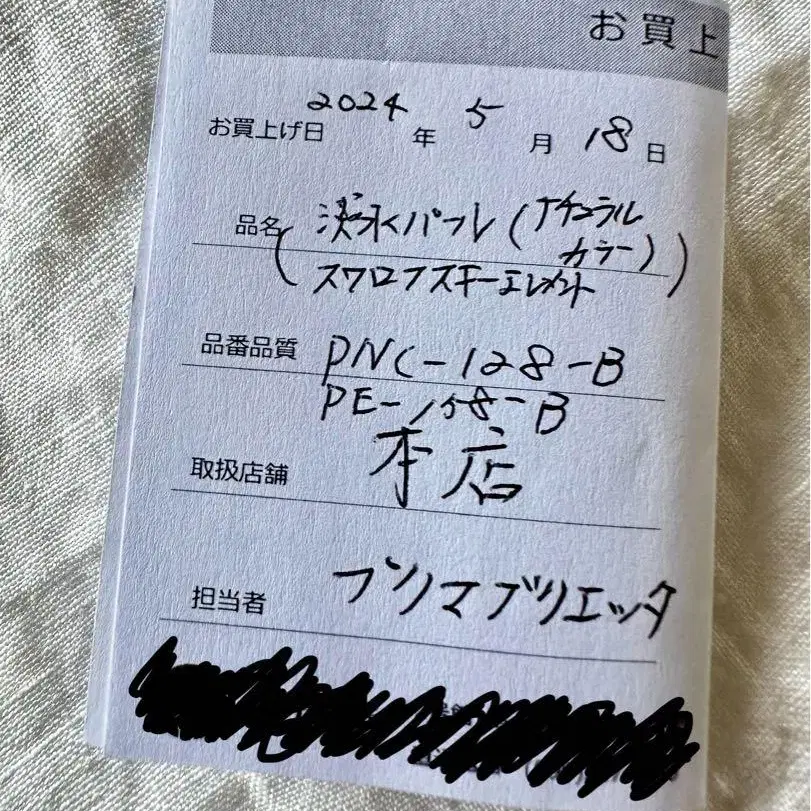 お買上
お買上げ日 2024 年 5 月 18 日
品名 淡水パール(ナチュラル
カラー)
(スワロフスキーエレメント)
品番品質 PNC-128-B
PE-158-B
取扱店舗 本店
担当者 プリマブリエッタ